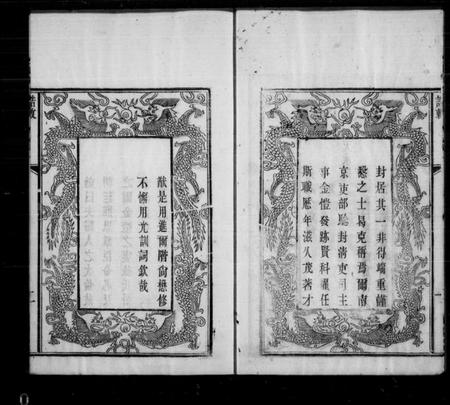 誥敕
封居其一非得端重慎
愨之士曷克膺焉爾南
京吏部驗封清吏司主
事金愷發跡賢科擢任
斯職歷年滋久茂著才
猷是用進爾階尚懋修
不懈用光訓詞欽哉
誥敕